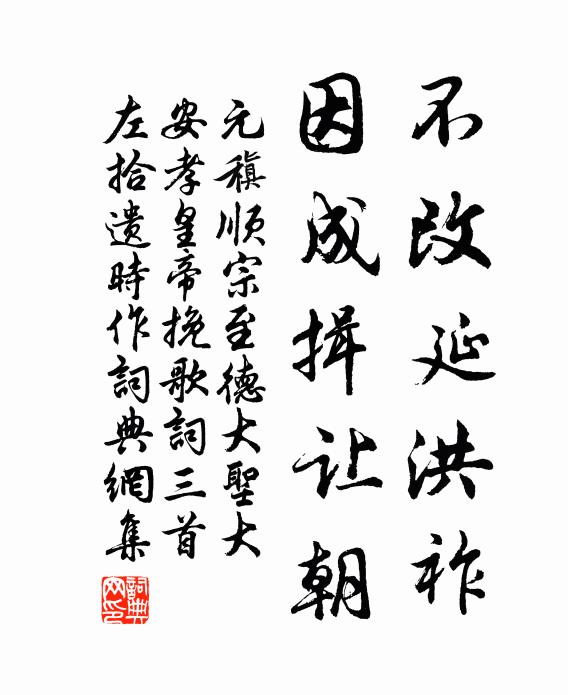 不改延洪祚
因成揖让朝
元稹顺宗至德大聖大
安孝皇帝挽歌詞三首
左拾遗時作詞典網集
詞典网印